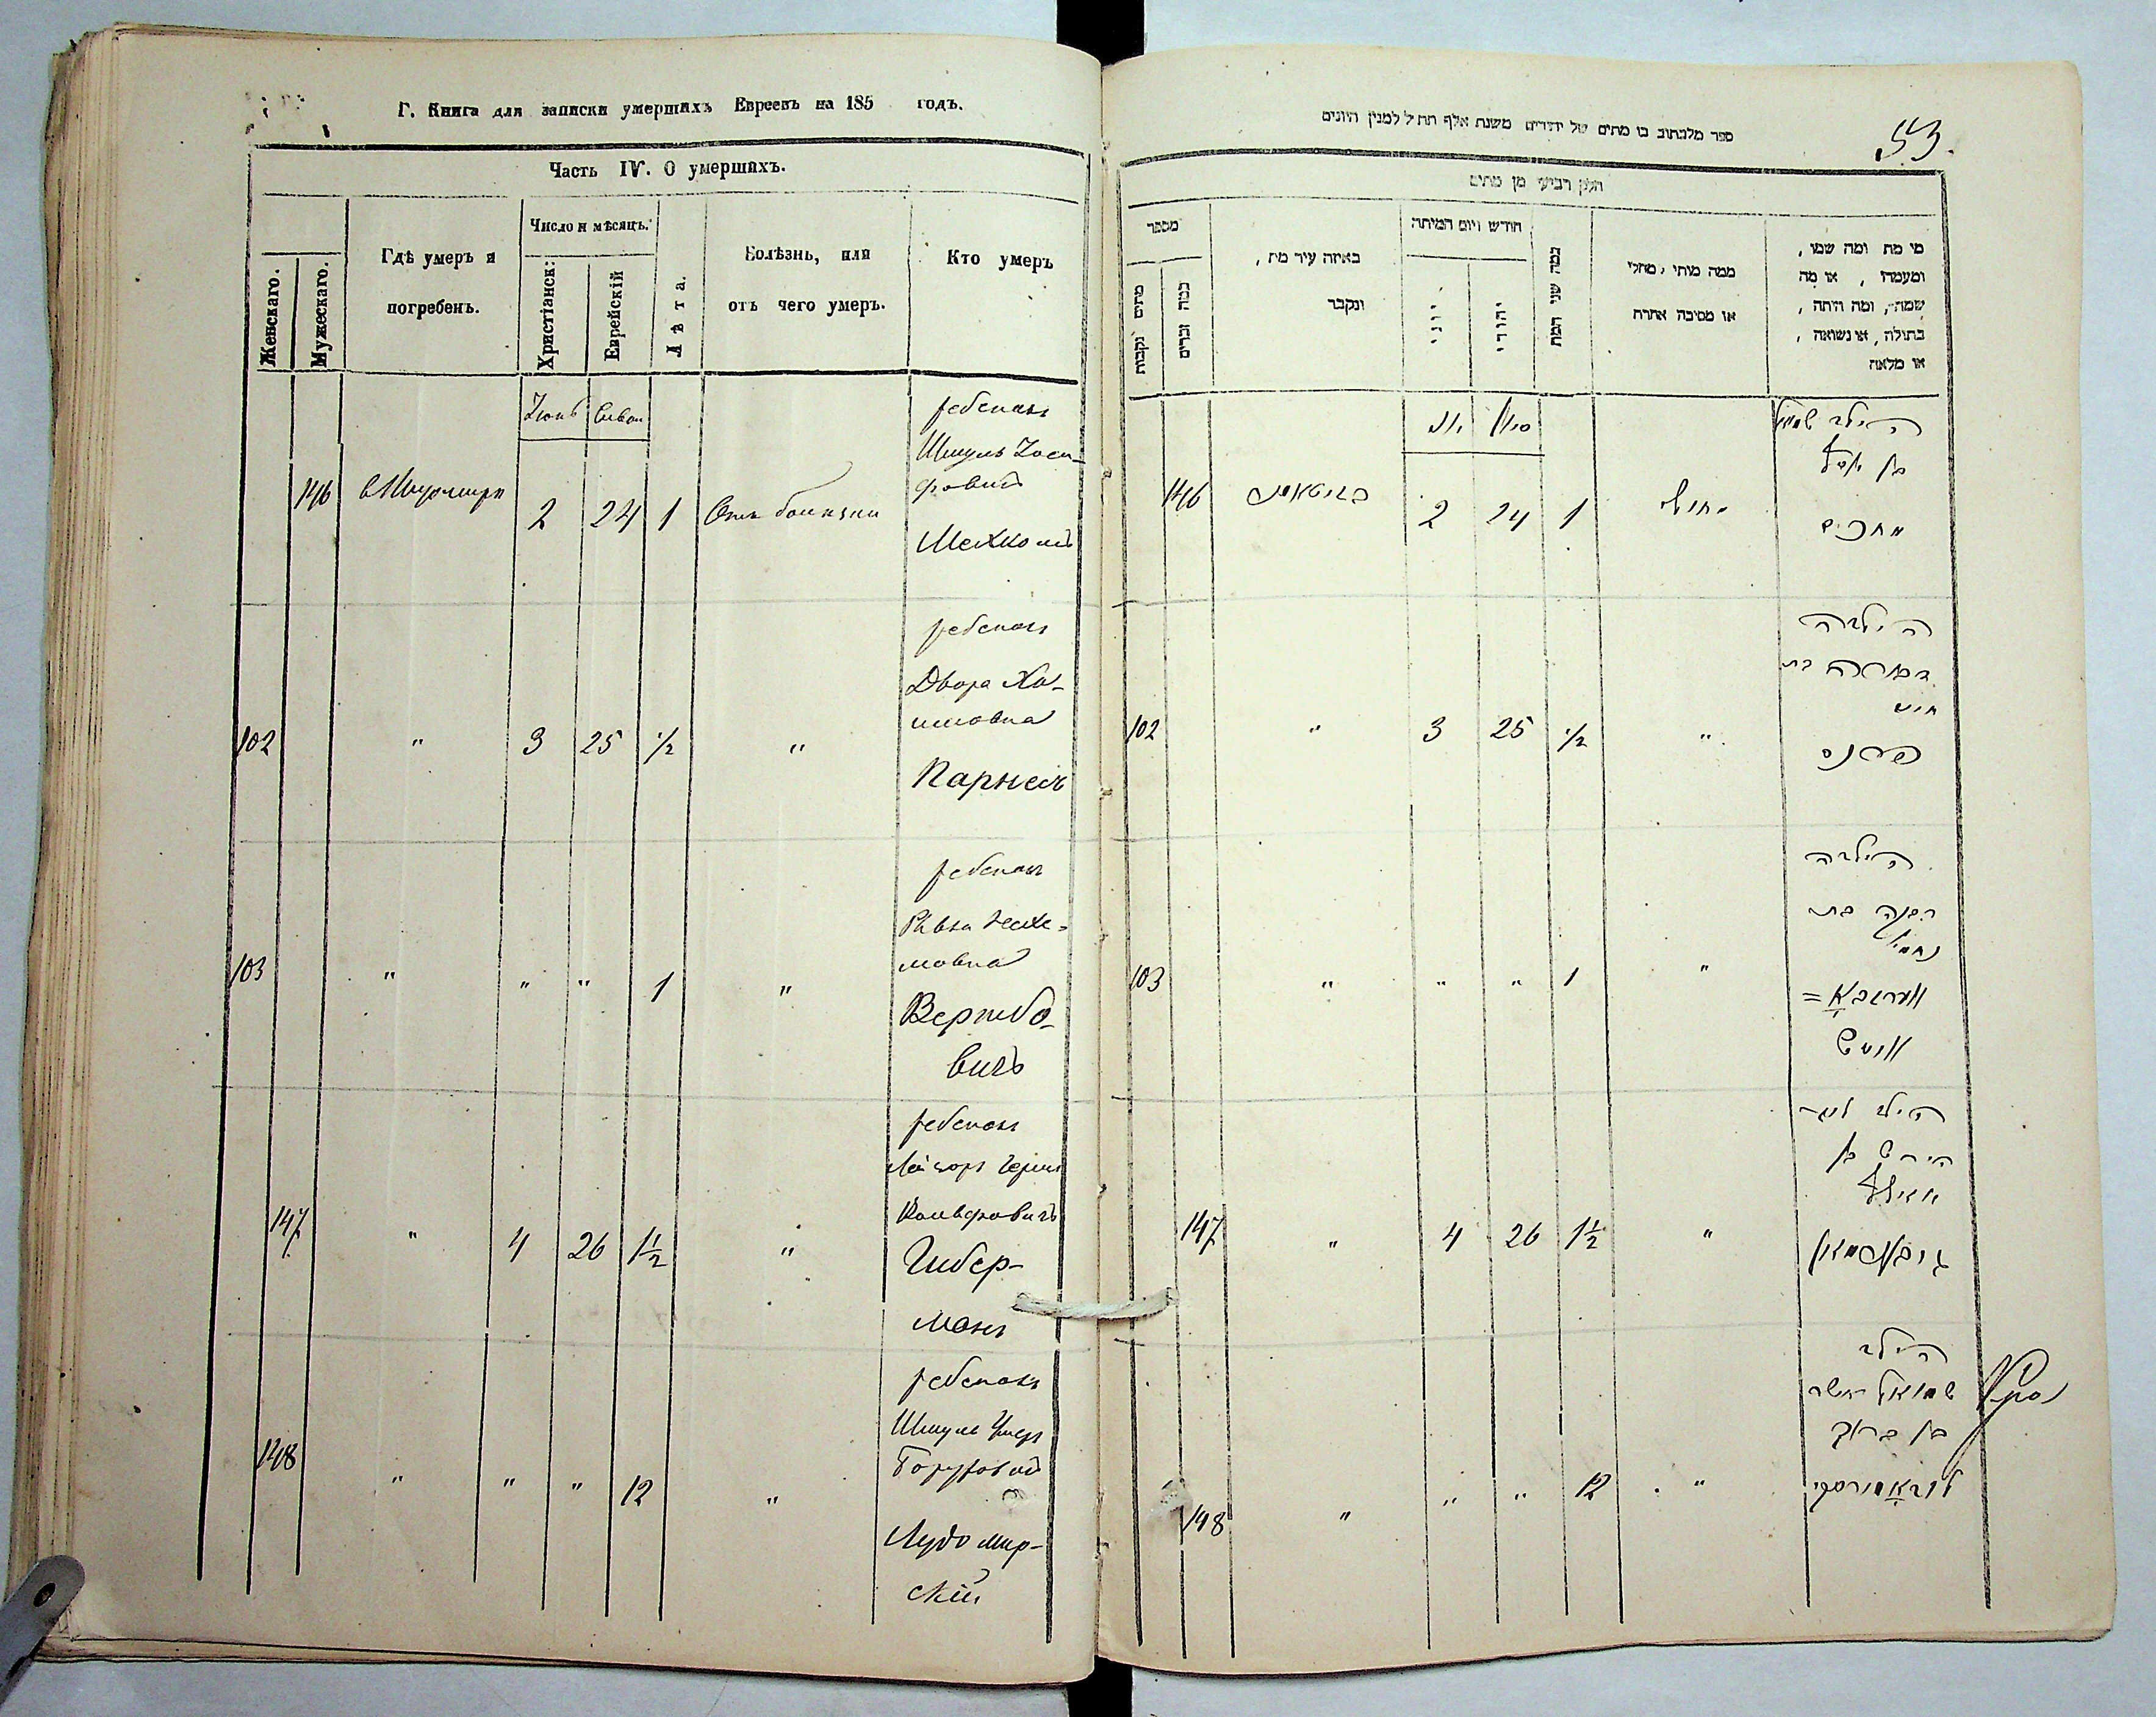 Г. Книга для записки умершихъ Евреевъ на 185 годъ.
Часть IV. О умершихъ.
Женскаго.
Мужескаго.
Гдѣ умеръ и
погребенъ.
Число и мѣсяцъ.
Христіанск:
Еврейскій
Лѣта.
Болѣзнь, или
отъ чего умеръ.
Кто умеръ
Іюнь
Сиван
146
вЖитомирѣ
2
24
1
Отъ болѣзни
ребенокъ
Шмуль Іоси-
фовичъ
102
"
3
25
1/2
"
ребенокъ
Двора Ха-
имовна
Парнесъ
103
"
"
"
1
"
ребенокъ
Ривка
Вербо-
вичъ
147
"
4
26
1 1/2
"
ребенокъ
Вольфовичъ
Гибер-
манъ
148
"
"
"
12
"
ребенокъ
Шмуль
Боруховичъ
Лудомир-
скій
53.
ספר מלכתוב בו מתים של יהודים משנת אלף תת״ל למנין היונים
חלק רביעי מן מתים
מספר
כמה נקבות
כמה זכרים
באיזה עיר מת,
ונקבר
חודש ויום המיתה
יווני
יהודי
כמה שני המת
ממה מיתי, מחלי
או מסיבה אחרת
מי מת ומה שמו,
ומעמדו, או מה
שמה, ומה היתה,
בתולה, או נשואה,
או מלאה
יוני
סיון
146
2
24
1
הילד שמואל
בן יוסף
102
"
3
25
1/2
"
הילדה
דבורה בת
חיים
פרנס
103
"
"
"
1
"
הילדה
רבקה בת
נחום
ווערבא=
וויטש
147
"
4
26
1 1/2
"
הילד
הירש בן
וואלף
גיבערמאן
148
"
"
"
12
"
הילד
שמואל אשר
בן ברוך